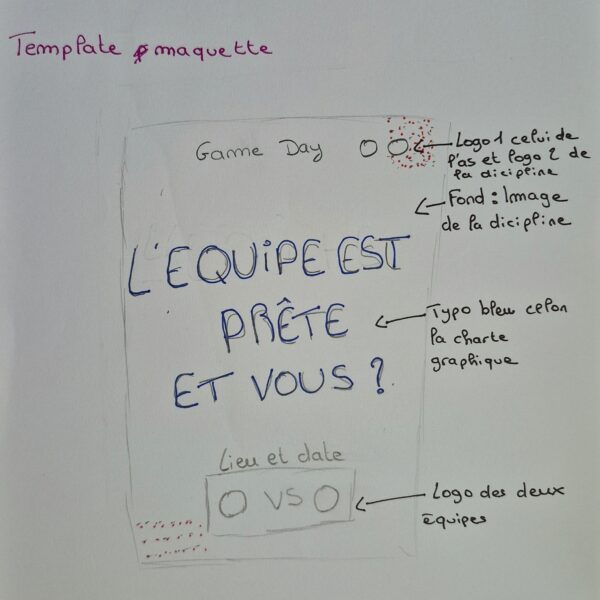 Template maquette
Game Day
Logo 1 celui de
l'as et logo 2 de
la dicipline
Fond : Image
de la dicipline
L'EQUIPE EST
PRÊTE
ET VOUS ?
Typo bleu celon
la charte
graphique
Lieu et date
VS
Logo des deux
équipes